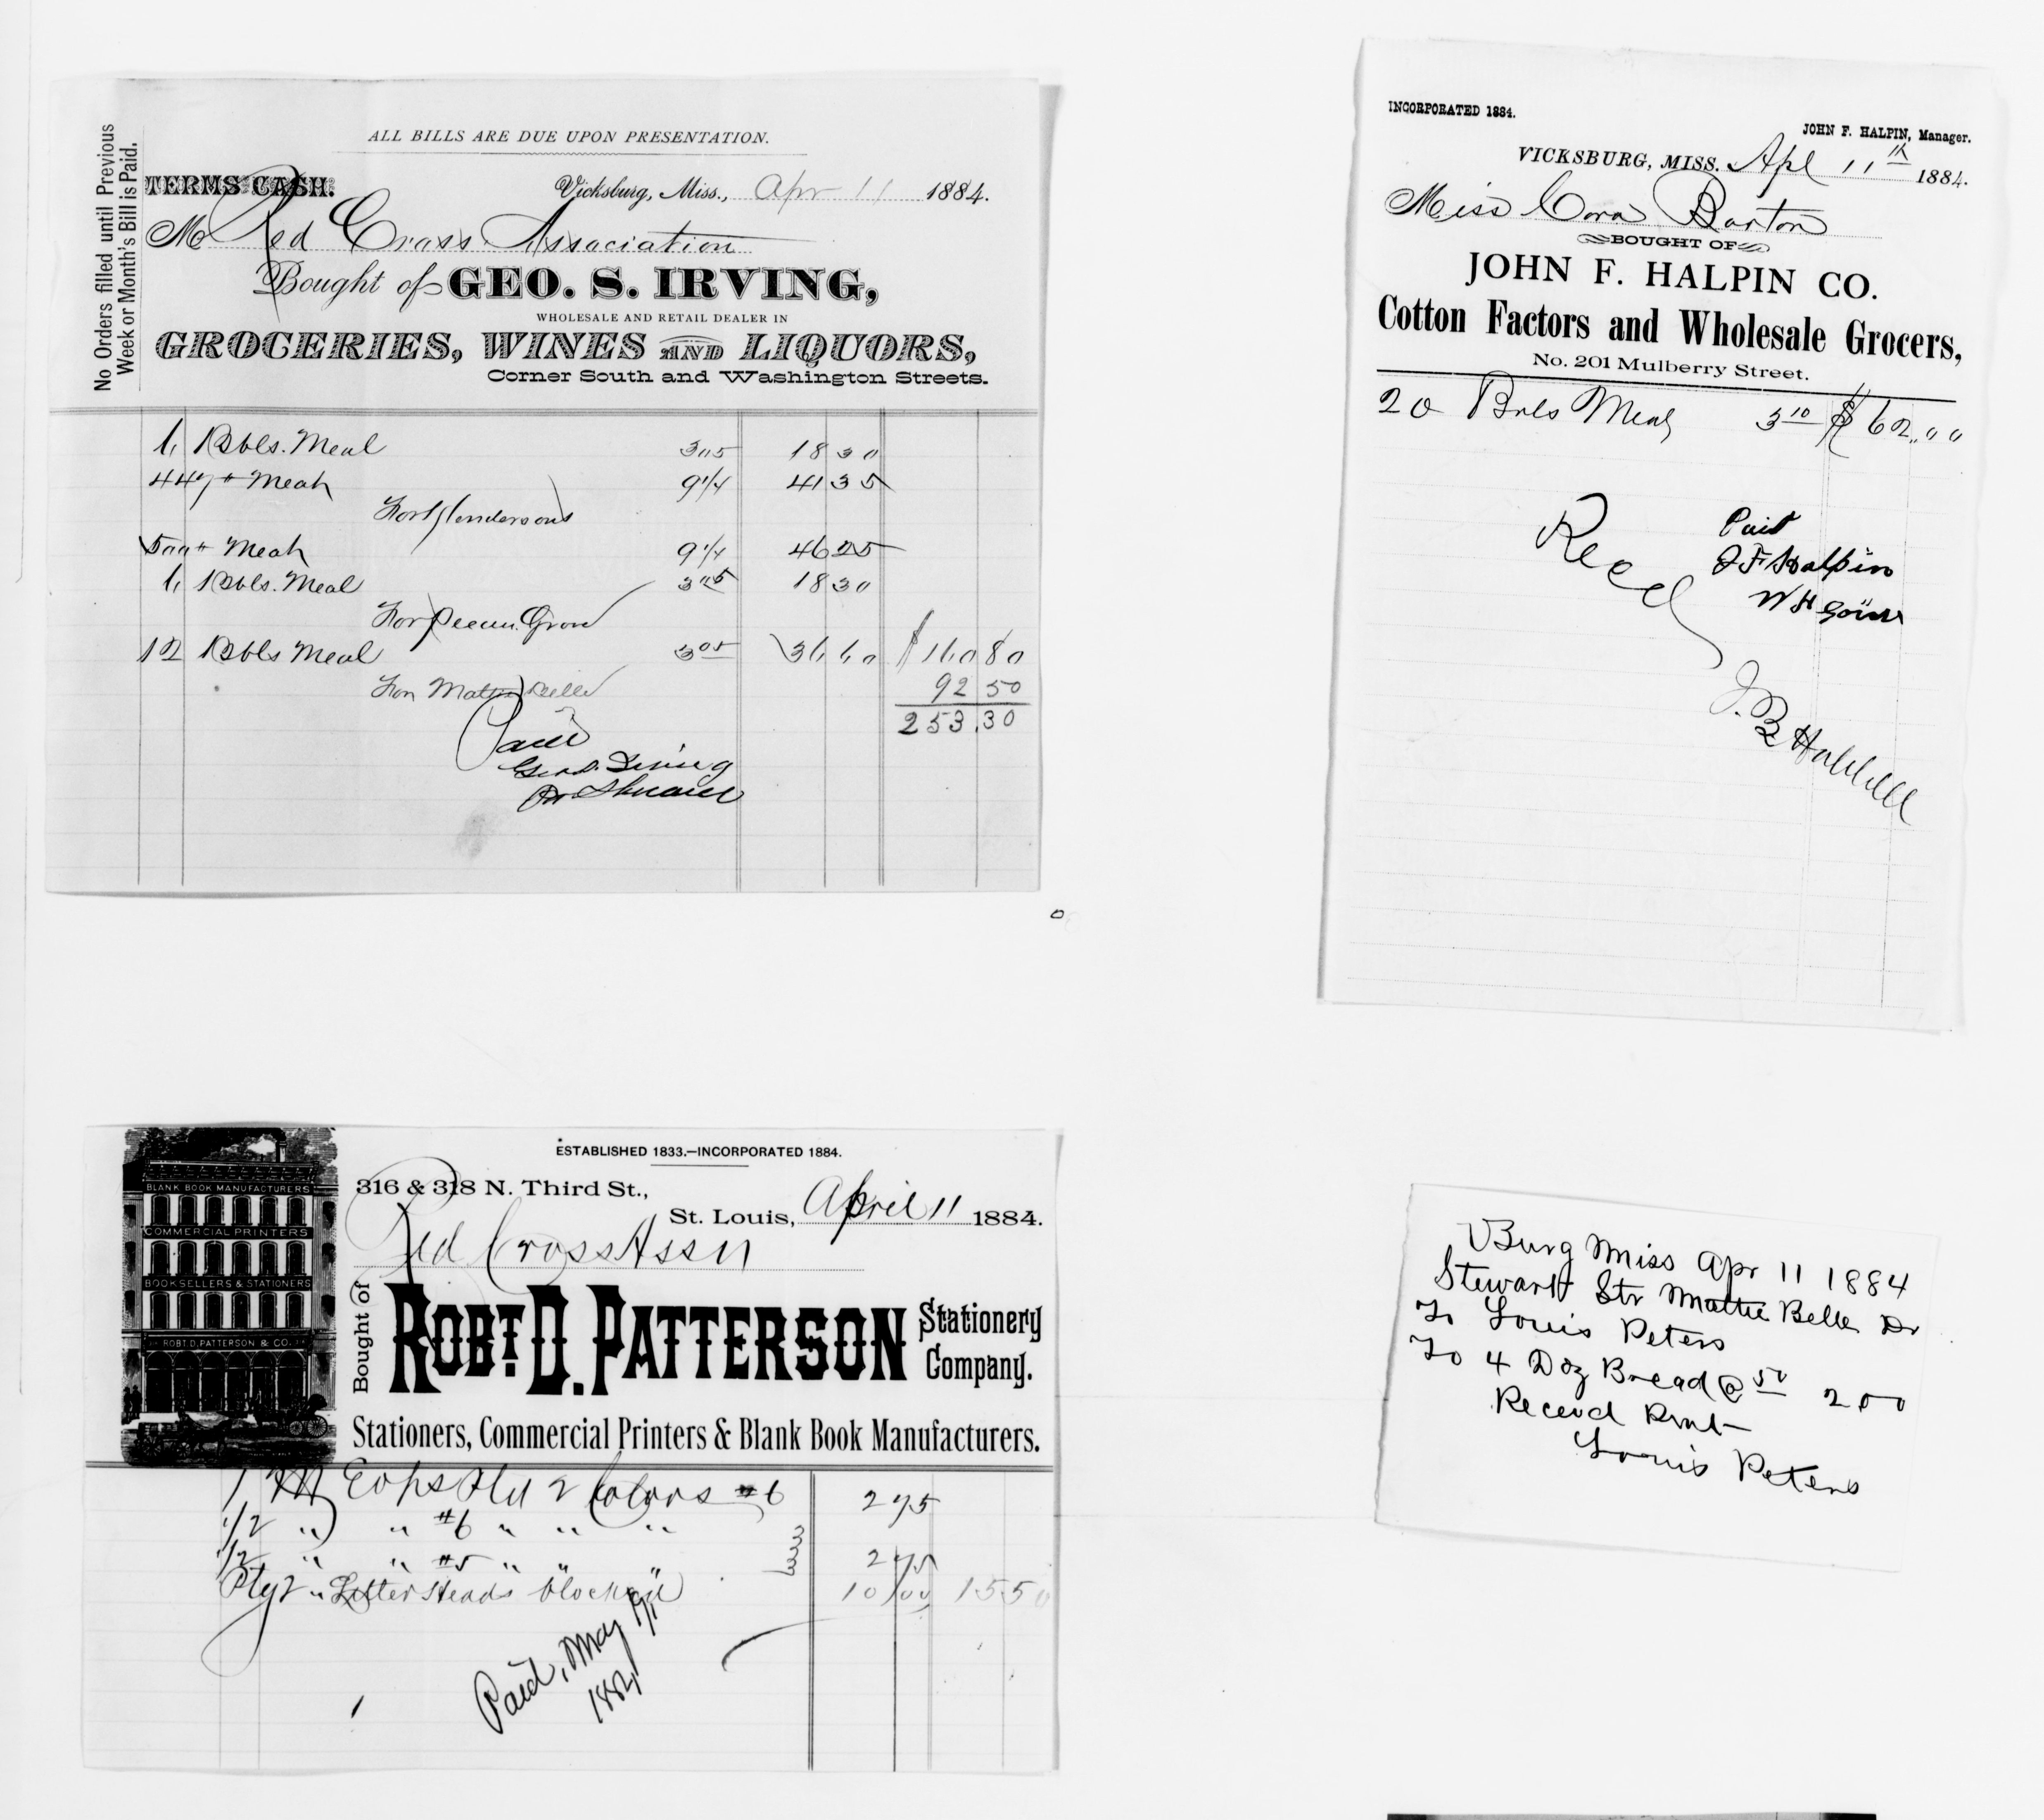 No Orders filled until Previous
Week or Month's Bill is Paid.
ALL BILLS ARE DUE UPON PRESENTATION.
TERMS CASH.
Vicksburg, Miss., Apr 11 1884.
M Red Cross Association
Bought of GEO. S. IRVING,
WHOLESALE AND RETAIL DEALER IN
GROCERIES, WINES AND LIQUORS,
Corner South and Washington Streets.
6 Bbls. Meal 3 05 18 30
447 # Meat 9 1/4 41 35
For Hendersons
500 # Meat 9 1/4 46 25
6 Bbls. Meal 3 05 18 30
For Pecan Grove
12 Bbls Meal 3 05 36 60 $ 160 80
For Mattie Belle 92 50
253.30
Paid
Geo. S. Irving
INCORPORATED 1884.
JOHN F. HALPIN, Manager.
VICKSBURG, MISS. Apl 11th 1884.
Miss Cora Barton
BOUGHT OF
JOHN F. HALPIN CO.
Cotton Factors and Wholesale Grocers,
No. 201 Mulberry Street.
20 Brls Meal 3 10 $ 62,00
Recd
Paid
J F Halpin
W H
J. B Hubbell
BLANK BOOK MANUFACTURERS
COMMERCIAL PRINTERS
BOOKSELLERS & STATIONERS
ROBT. D. PATTERSON & CO.
ESTABLISHED 1833.—INCORPORATED 1884.
316 & 318 N. Third St.,
St. Louis, April 11 1884.
Red Cross Assn
Bought of ROBT. D. PATTERSON Stationery Company.
Stationers, Commercial Printers & Blank Book Manufacturers.
1 M 2 Colors #6 2 75
1/2 " " #6 " " " 3
1/2 " " #5 " " " 3 2 75
Ptg 2 " Letter Heads 10 00 15 50
Paid, May
1884
VBurg Miss Apr 11 1884
Stewart Str Mattie Belle Dr
To Louis Peters
To 4 Doz Bread @ 50 2 00
Receivd
Louis Peters